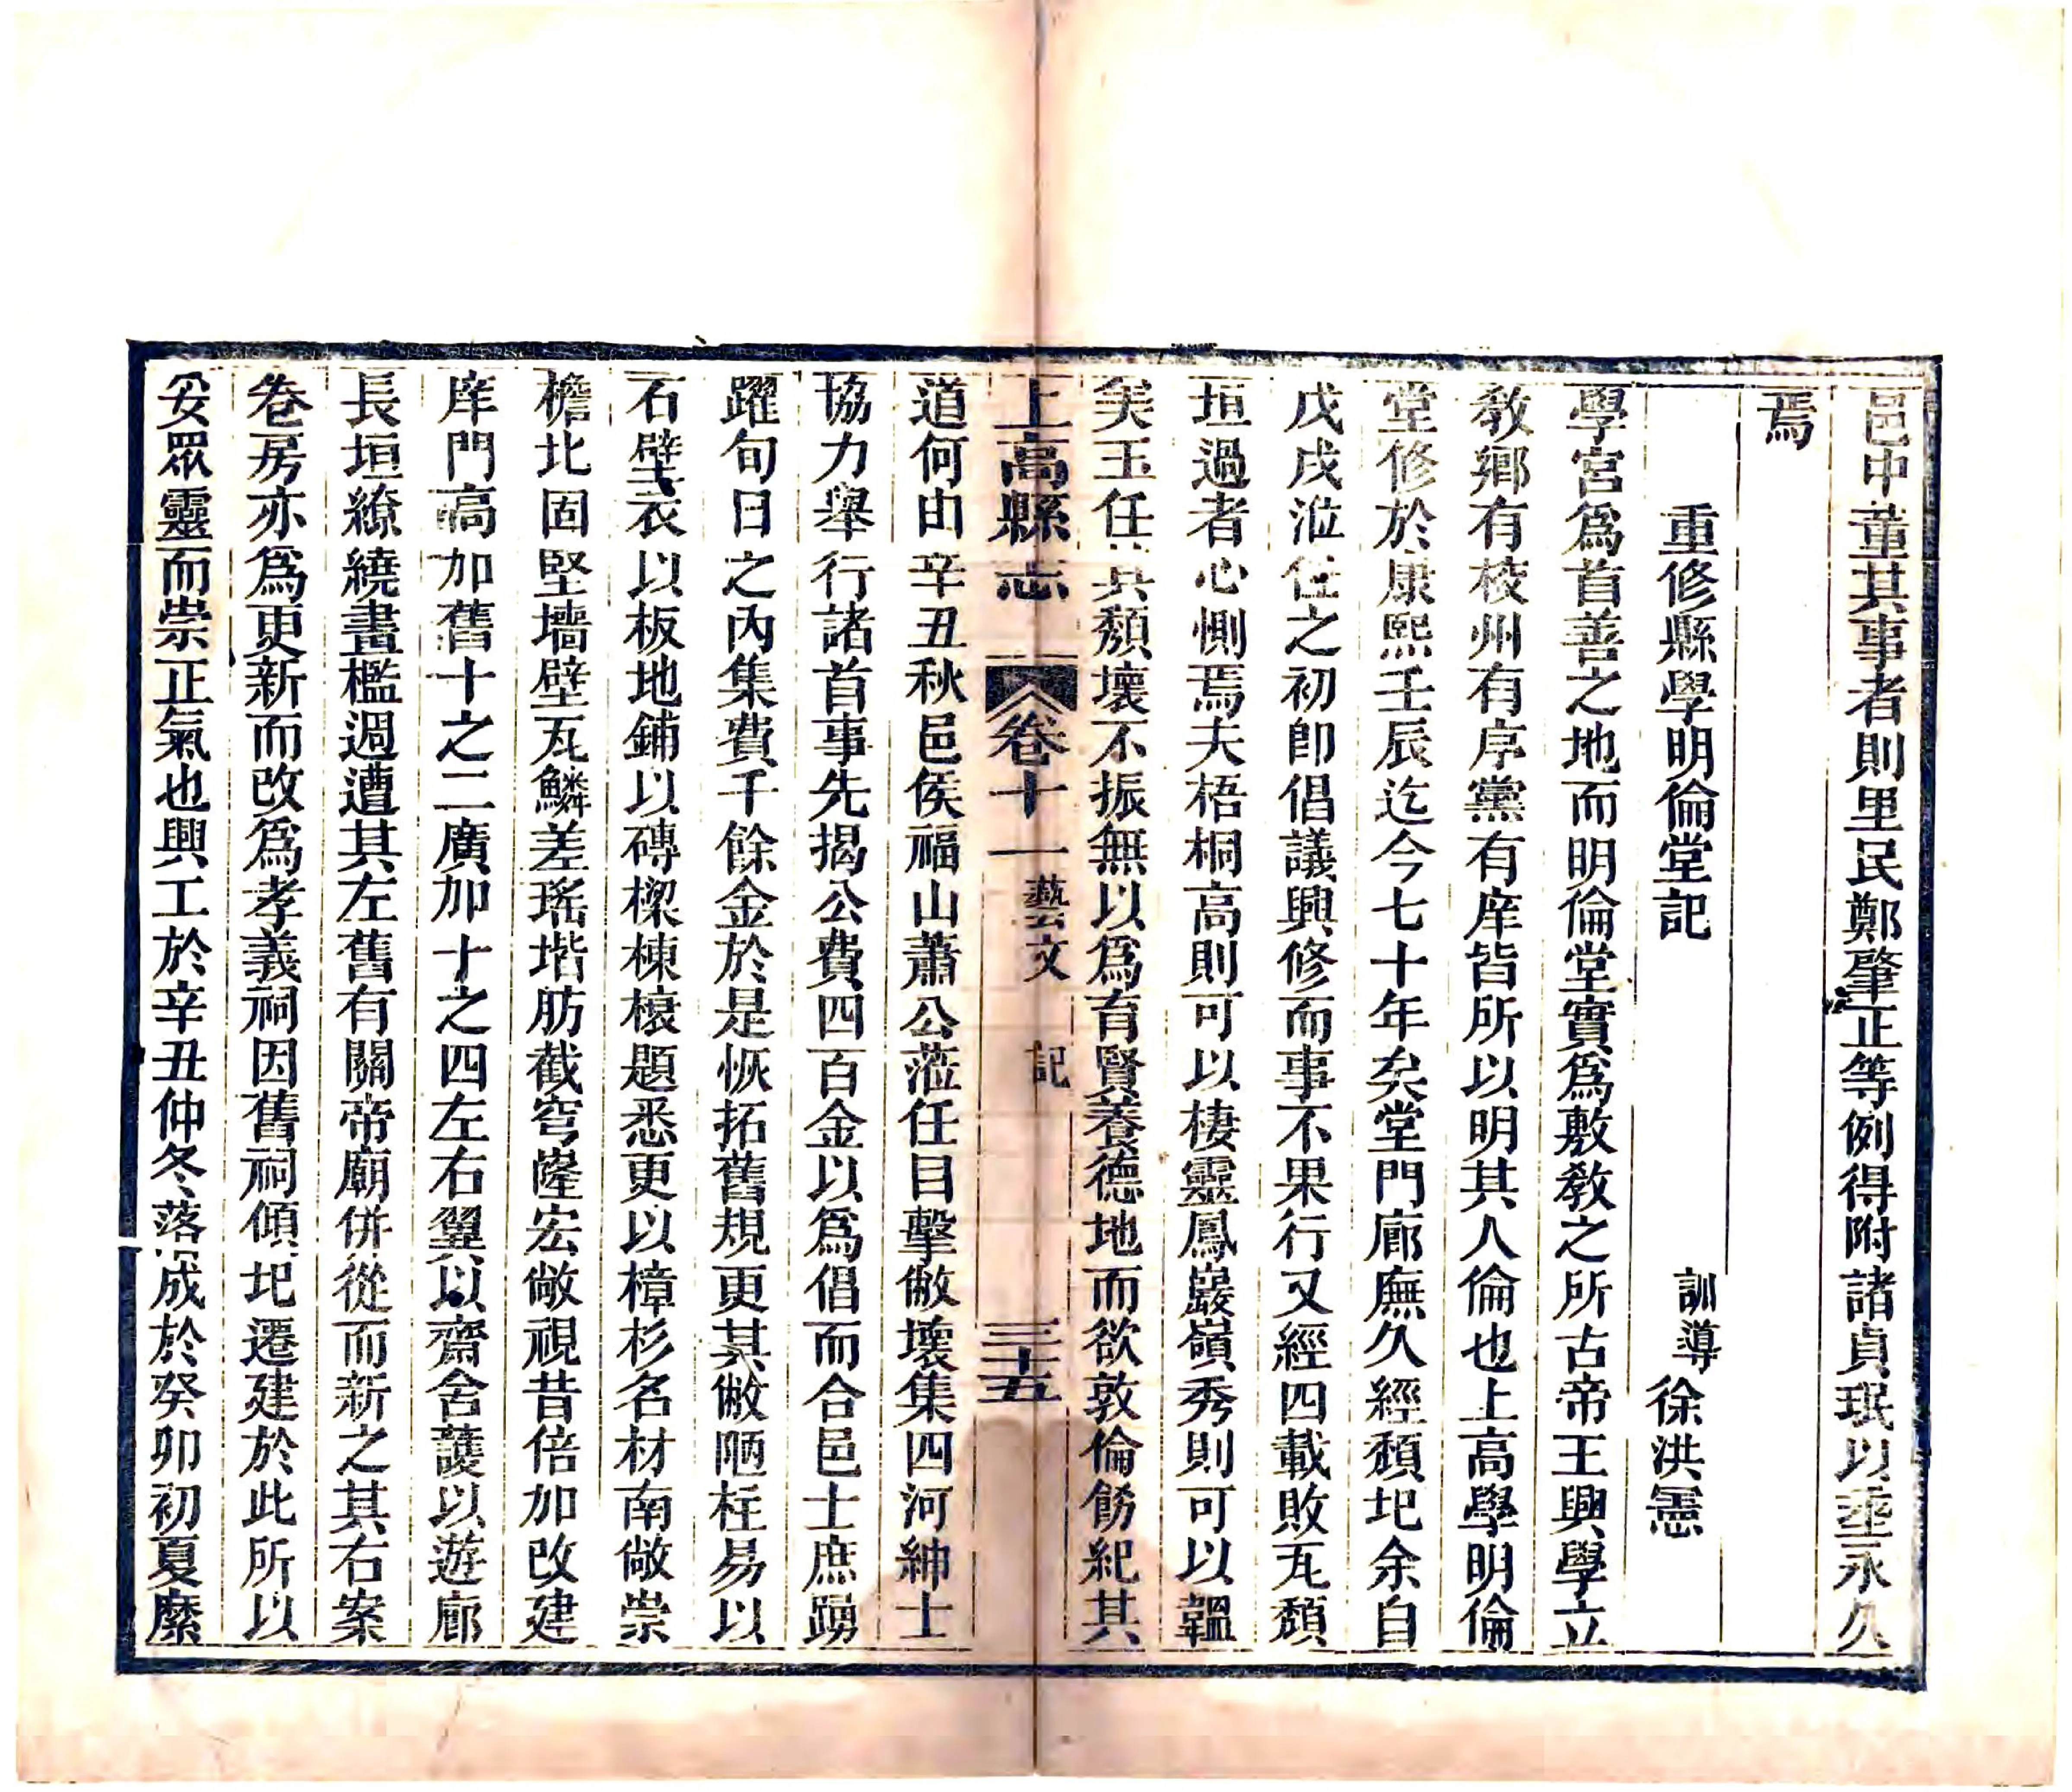 邑中董其事者則里民鄭肇正等例得附諸貞珉以垂永久
焉
重修縣學明倫堂記
訓導徐洪憲
學宮爲首善之地而明倫堂實爲敷敎之所古帝王興學立
敎鄉有校州有序黨有庠皆所以明其人倫也上高學明倫
堂修於康熙壬辰迄今七十年矣堂門廊廡久經頹圯余自
戊戌涖任之初卽倡議興修而事不果行又經四載敗瓦頹
垣過者心惻焉夫梧桐高則可以棲靈鳳巖嶺秀則可以韞
美玉任其頹壞不振無以爲育賢養德地而欲敦倫飭紀其
上高縣志
卷十一
藝文
記
三十五
道何由辛丑秋邑侯福山蕭公蒞任目擊敝壞集四河紳士
協力舉行諸首事先揭公費四百金以爲倡而合邑士庶踴
躍旬日之內集費千餘金於是恢拓舊規更其敝陋柱易以
石壁衣以板地鋪以磚樑棟榱題悉更以樟杉名材南敞崇
檐北固堅墻壁瓦鱗差瑤堦肪截穹隆宏敞視昔倍加改建
庠門高加舊十之二廣加十之四左右翼以齋舍護以遊廊
長垣繚繞畫檻週遭其左舊有關帝廟併從而新之其右案
卷房亦爲更新而改爲孝義祠因舊祠傾圯遷建於此所以
妥眾靈而崇正氣也興工於辛丑仲冬落成於癸卯初夏縻